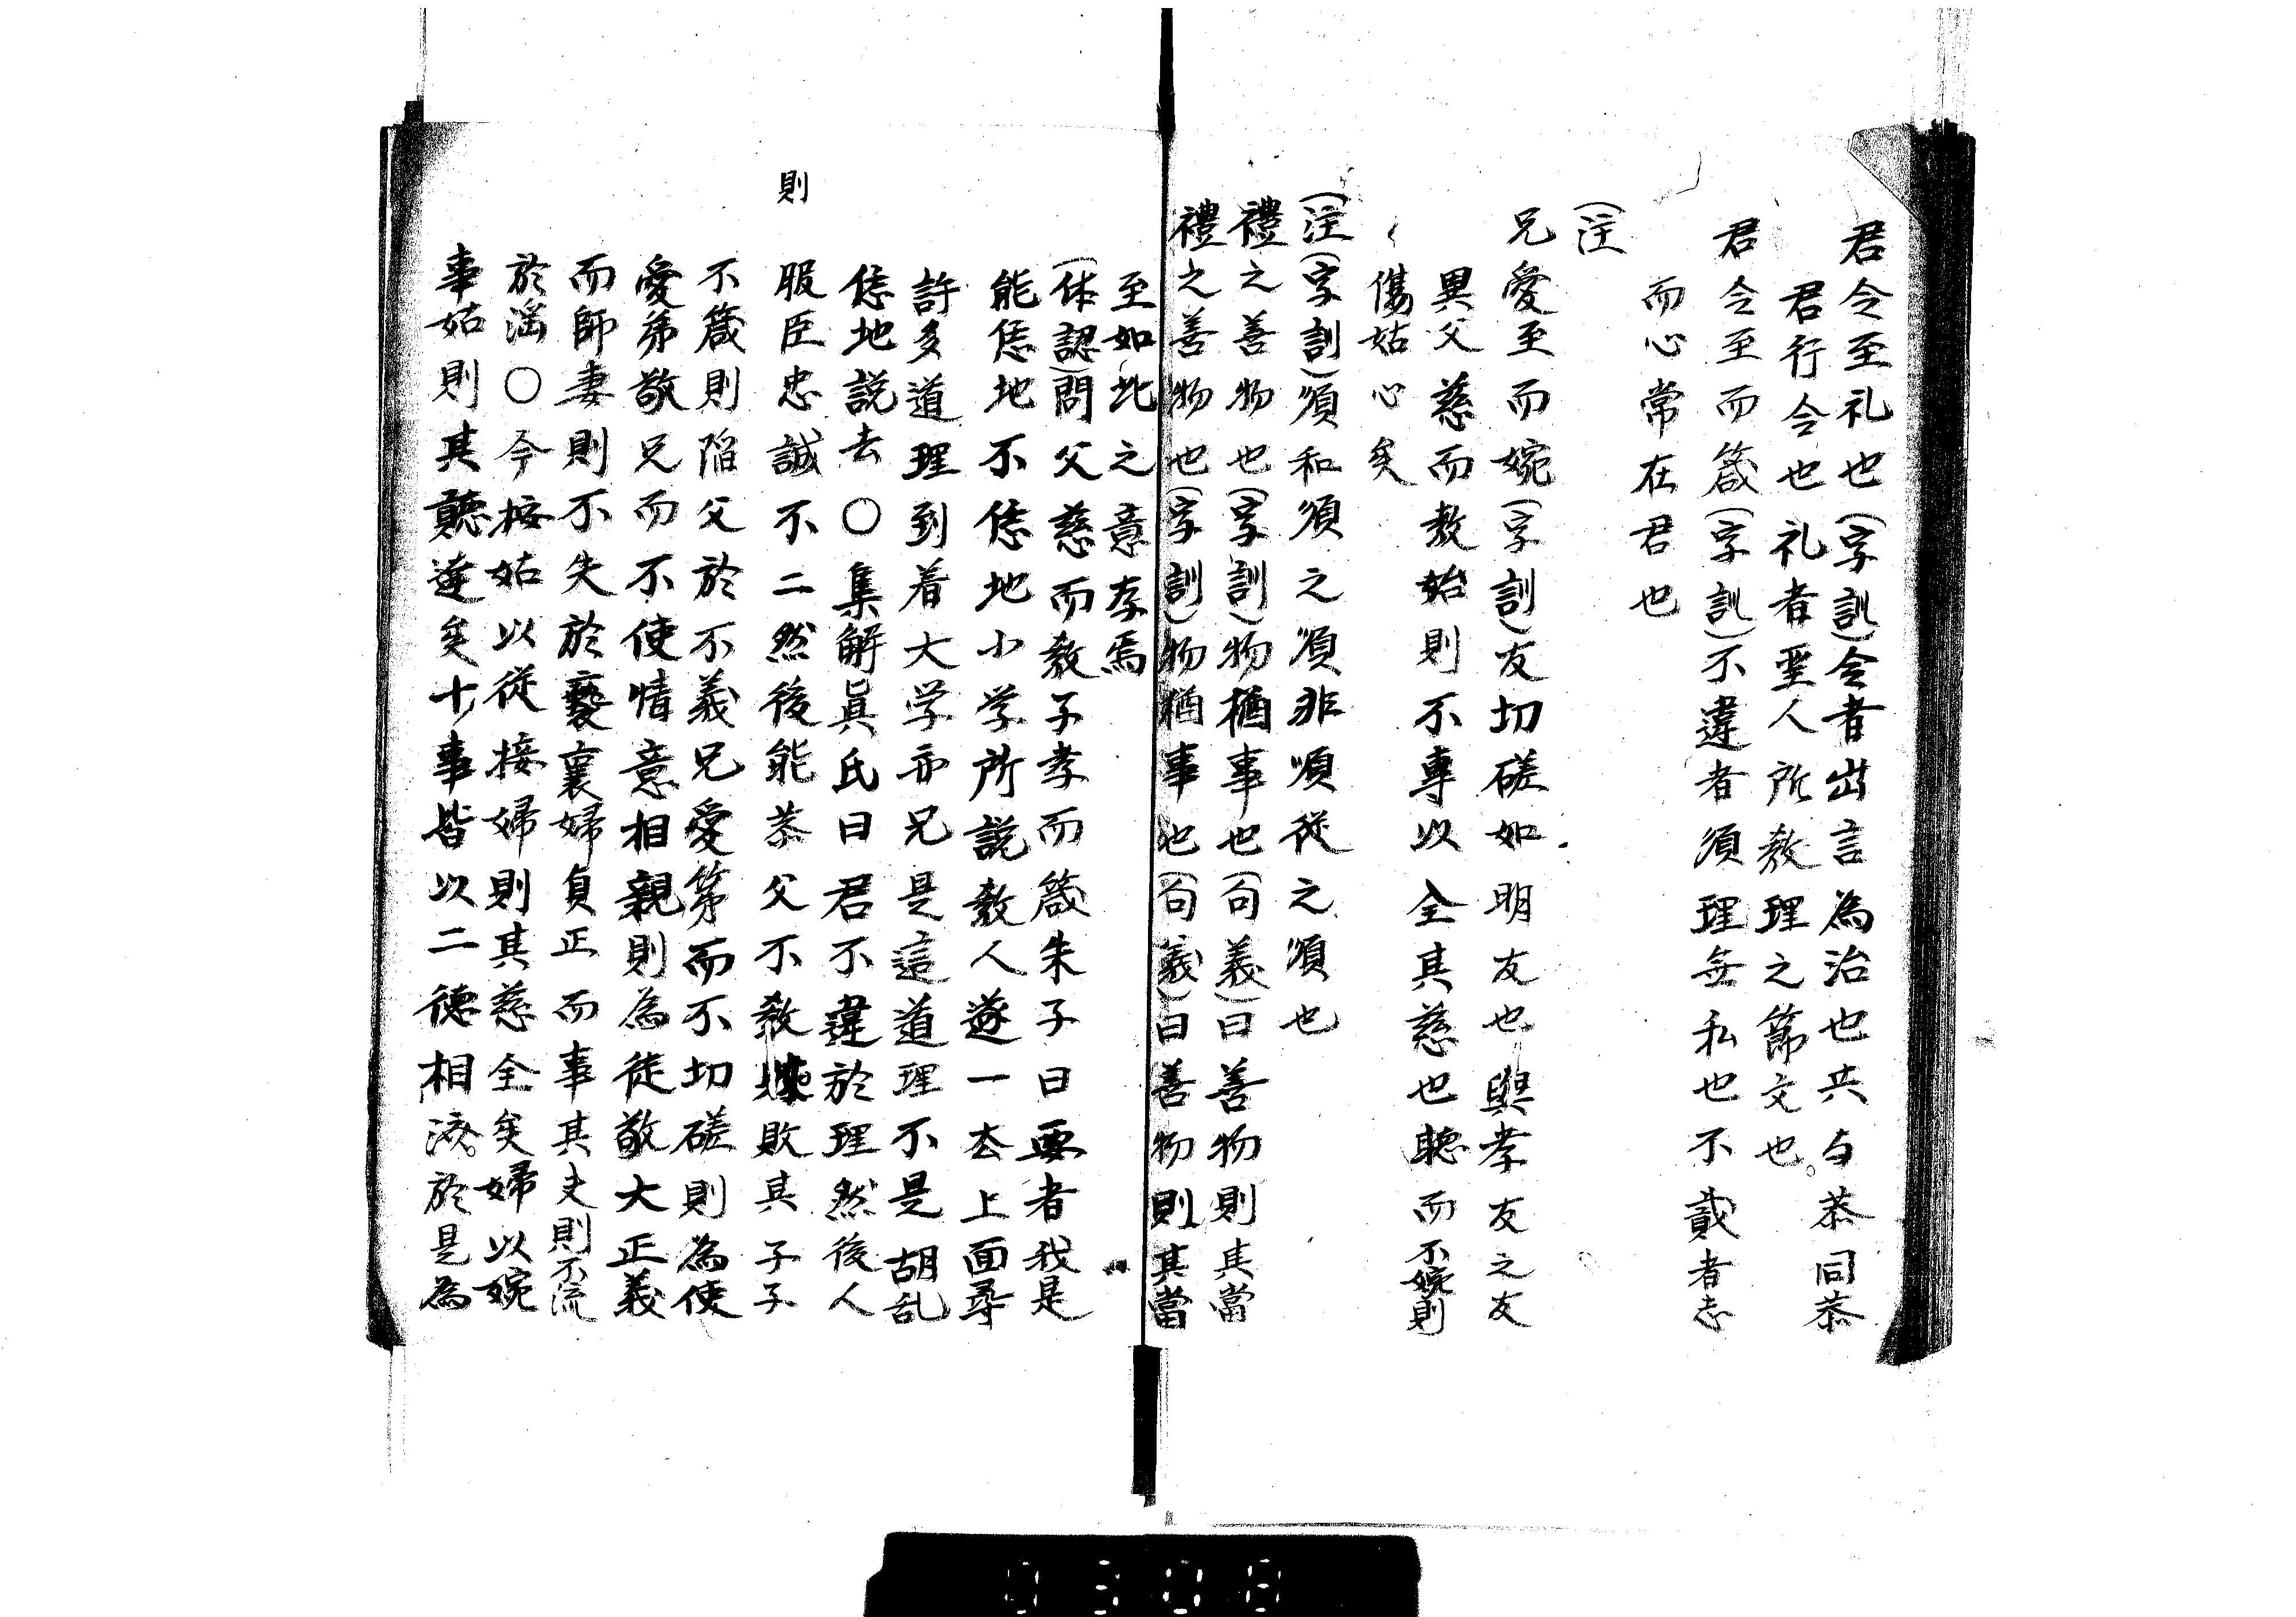 君令至礼也(字訓)令者出言為治也共与恭同恭
君行令也礼者聖人所教理之節文也
君令至而箴(字訓)不違者須理無私也不貳者志
而心常在君也
(注
兄愛至而婉(字訓)友切磋如明友也與孝友之友
異父慈而教始則不専以全其慈也聴而不婉則
傷姑心矣
(注(字訓)順和順之順非順従之順也
禮之善物也(字訓)物猶事也(句義)曰善物則其當
禮之善物也(字訓)物猶事也(句義)曰善物則其當
至如此之意存焉
(体認)問父慈而教子孝而箴朱子曰要者我是
能恁地不恁地小学所説教人逐一去上面尋
許多道理到着大学亦兄是這道理不是胡乱
恁地説去○集解眞氏曰君不違於理然後人
則
服臣忠誠不二然後能恭父不教敗其子子
不箴則陷父於不義兄愛弟而不切磋則為使
愛弟敬兄而不使情意相親則為徒敬大正義
而師妻則不失於褻襄婦貞正而事其丈則不流
於淫○今按姑以從接婦則其慈全矣婦以婉
事姑則其聽達矣十事皆以二德相済於是為